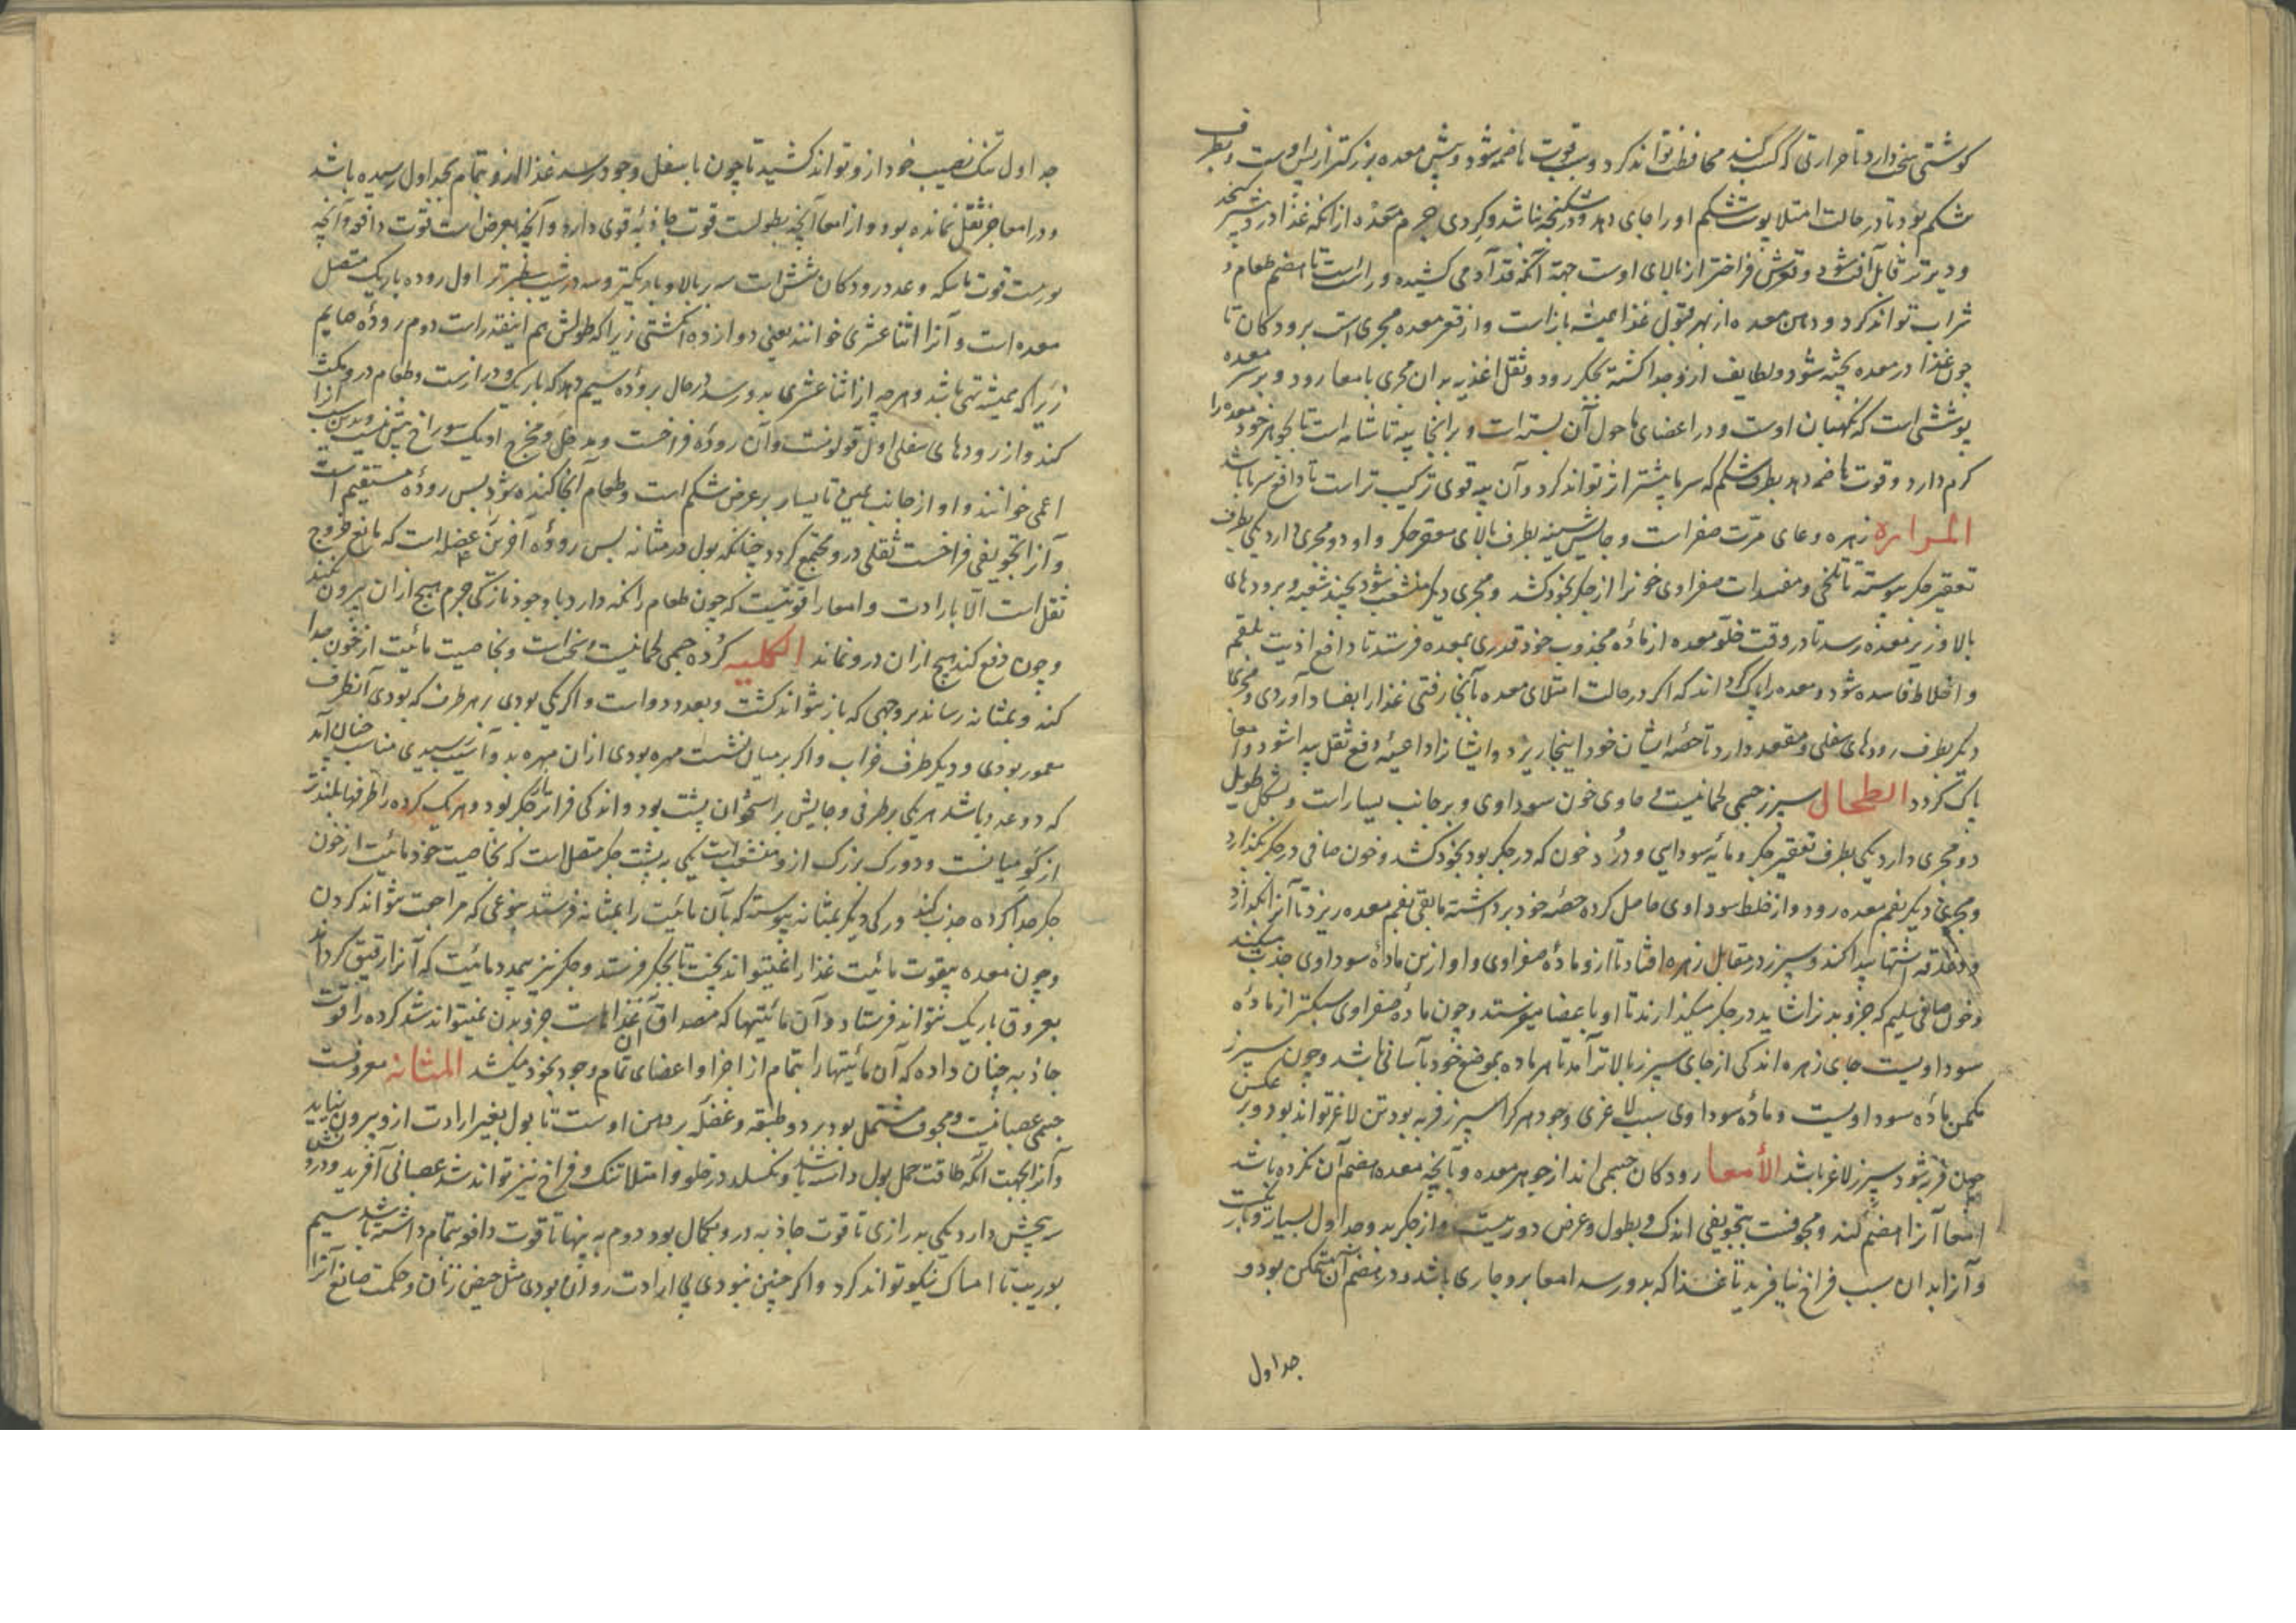 کوشتی سخت دارد تا حرارتی که کسب کند محافظت تواند کرد و بقوت هاضمه شود و پیش معده بزرکتر از پس اوست و بطرف
شکم بود تا در حالت امتلا پوست شکم او را جای دهد و در شکنجه نباشد و کردی جرم معده از انکه غذا در و بیشتر کنجد
و دیرتر قابل آفت شود و قعرش فراختر از بالای اوست جهة آنکه قد آدمی کشیده و راست تا هضم طعام و
شراب تواند کرد و دهن معده از بهر قبول غذا همیشه باز است و از قعر معده مجری است برودکان تا
چون غذا در معده پخته شود و لطایف ازو جدا کشته بجکر رود و ثقل اغذیه بدان مجری بامعا رود و بر سر معده
پوششی است که نکهبان اوست و در اعضای ما حول آن بسته است و برانجا پیه تا شانه است تا جوهر خود معده را
کرم دارد و قوت هاضمه دهد بطرف شکم که سرما بیشتر اثر تواند کرد و آن پیه قوی ترکیب تر است تا دافع سرما باشد
المراره زهره وعای مرّت صفراست و جایش بطرف بالای مقعر جکر و او دو مجری دارد یکی بطرف
تقعیر جکر پیوسته تا تلخی و مفسدات صفراوی خونرا از جکر بخود کشد و مجری دیکر منشعب شود بچند شعبه و برودهای
بالا و زیر معده رسد تا در وقت خلو معده از مادهٔ مجذوب خود قدری بمعده فرستد تا دافع اذیت بلغم
و اخلاط فاسده شود و معده را پاک کرداند که اکر در حالت امتلای معده بآنجا رفتی غذا را بفساد آوردی و مجری
دیکر بطرف رودهای سفلی و مقعد دارد تا حصهٔ ایشان خود اینجا ریزد و ایشانرا داعیهٔ دفع ثقل پیدا شود و معا
پاک کردد الطحال سپرز جسمی لحمانیست حاوی خون سوداوی و بر جانب یسار است و بشکل طویل
دو مجری دارد یکی بطرف تقعیر جکر و مایهٔ سوداسی و دُرد خون که در جکر بود بخود کشد و خون صافی در جکر بکذارد
و مجری دیکر بفم معده رود و از خلط سوداوی حاصل کرده حصهٔ خود برداشته مابقی بفم معده ریزد تا آنرا
و دغدغه اشتها پیدا کند و سپرز در مقابل زهره افتاد تا ازو مادهٔ صفراوی و او ازین مادهٔ سوداوی جذب میکند
و خون صافی سلیم که جزو بدنرا شاید در جکر میکذارند تا او باعضا میفرستد و چون مادهٔ صفراوی سبکتر از مادهٔ
سوداویست جای زهره اندکی از جای سپرز بالاتر آمد تا هر ماده بموضع خود بآسانی باشد و چون سپرز
مکمن مادهٔ سوداویست و مادهٔ سوداوی سبب لاغری وجود هر کرا سپرز فربه بود تن لاغر تواند بود و بر عکس
چون فربه شود سپرز لاغر باشد الأمعا رودکان جسمی اند از جوهر معده و آنچه معده هضم آن نکرده باشد
امعا آنرا هضم کند و مجوفست بتجویفی اندک و بطول و عرض دوریست و از جکر بدو جداول بسیار
و آنرا بدان سبب فراخ نیافرید تا غذا که بدو رسد امعا برو جاری باشد و در هضم آن متمکن بود و
جداول
جداول تنک نصیب خود ازو تواند کشید تا چون باسفل وجود رسد غذا ازو بتمام بجداول رسیده باشد
و در امعا جز ثقل نمانده بود و از امعا آنچه بطولست قوت جاذبهٔ قوی دارد و آنچه بعرض است قوت دافعه و آنچه
بوربست قوت ماسکه و عدد رودکان شش است سه بر بالا و باریکتر و سه در شیب سطبرتر اول روده باریک متصل
معده است و آنرا اثنا عشری خوانند یعنی دوازده انکشتی زیرا که طولش هم اینقدر است دوم رودهٔ صایم
زیرا که همیشه تهی باشد و هر چه از اثنا عشری بدو رسد در حال برودهٔ سیم دهد که باریک و درازست و طعام درو مکث
کند و از رودهای سفلی اول قولونست و آن رودهٔ فراخست و مدخل و مخرج او یک سوراخ بیش نیست و بدین سبب آنرا
اعمی خوانند و او از جانب یمین تا یسار بر عرض شکم است و طعام آنجا کنده شود پس رودهٔ مستقیم است
و آنرا تجویفی فراخست ثقلی درو مجتمع کردد چنانکه بول در مثانه پس رودهٔ آخرین عضله است که مانع خروج
ثقل است الّا بارادت و امعا را قوتیست که چون طعام را نکه دارد با وجود نازکی جرم هیچ از آن بیرون نکند
و چون دفع کند هیچ از آن درو نماند الکلیه کرده جسمی لحمانیست و سخت است و بخاصیت مائیت از خون جدا
کند و بمثانه رساند بر وجهی که باز نتواند کشت و بعدد دو است و اکر یکی بودی بر هر طرف که بودی آنطرف
معمور بودی و دیکر طرف خراب و اکر بر میان پشت مهره بودی از آن مهره بدو آسیب رسیدی مناسب چنان آمد
که دو عدد باشد هر یکی بر طرفی و جایش بر استخوان پشت بود و اندکی فراتر از جکر بود و هر یک کرده را طرفها بلندتر
از کو میانست و دو رک بزرک ازو منشعب است یکی به پشت جکر متصل است که بخاصیت خود مائیت از خون
جکر جدا کرده جذب کند و رکی دیکر بمثانه پیوسته که بآن مائیت را بمثانه فرستد بنوعی که مراجعت نتواند کردن
و چون معده بیقوت مائیت غذا را نمیتواند پخت تا بجکر فرستد و جکر نیز بیمدد مائیت که آنرا رقیق کرداند
بعروق باریک نتواند فرستاد و آن مائیتها که مصداق آن غذاهاست جزو بدن نمیتواند شد کرده را قوت
جاذبه چنان داده که آن مائیتها را بتمام از اجزا و اعضای تمام وجود بخود میکشد المثانه معروفست
جسمی عصبانیست و مجوف مشتمل بود بر دو طبقه و عضله بر دهن اوست تا بول بغیر ارادت ازو بیرون نیاید
و آنرا بجهت آنکه طاقت حمل بول داشته باشد و نکسلد در خلو و امتلا تنک و فراخ نیز تواند شد عصبانی آفرید و درو
سه بخش دارد یکی بدرازی تا قوت جاذبه درو بکمال بود دوم به پهنا تا قوت دافعه بتمام داشته باشد سیم
بوریب تا امساک نیکو تواند کرد و اکر چنین نبودی بی ارادت روان بودی مثل حیض زنان و حکمت صانع آنرا